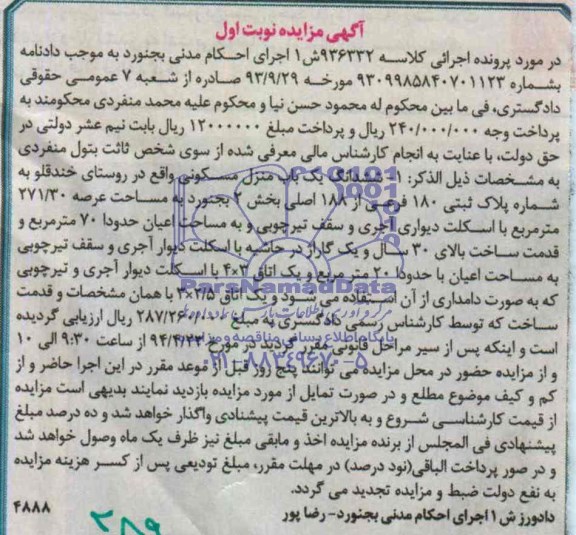 آگهی مزایده نوبت اول
در مورد پرونده اجرائی کلاسه ۹۳۶۳۳۲ش۱ اجرای احکام مدنی بجنورد به موجب دادنامه
بشماره ۹۳۰۹۹۸۵۸۴۰۷۰۱۱۲۳ مورخه ۹۳/۹/۲۹ صادره از شعبه ۷ عمومی حقوقی
دادگستری، فی ما بین محکوم له محمود حسن نیا و محکوم علیه محمد منفردی محکومند به
پرداخت وجه ۲۴۰/۰۰۰/۰۰۰ ریال و پرداخت مبلغ ۱۲۰۰۰۰۰۰ ریال بابت نیم عشر دولتی در
حق دولت، با عنایت به انجام کارشناس مالی معرفی شده از سوی شخص ثالث بتول منفردی
به مشخصات ذیل الذکر: ۱- ششدانگ یک باب منزل مسکونی واقع در روستای خندقلو به
شماره پلاک ثبتی ۱۸۰ فرعی از ۱۸۸ اصلی بخش ۲ بجنورد به مساحت عرصه ۲۷۱/۳۰
مترمربع با اسکلت دیواری آجری و سقف تیرچوبی و به مساحت اعیان حدودا ۷۰ مترمربع و
قدمت ساخت بالای ۳۰ سال و یک گاراژ در حاشیه با اسکلت دیوار آجری و سقف تیرچوبی
به مساحت اعیان با حدودا ۲۰ متر مربع و یک اتاق ۳×۴ با اسکلت دیوار آجری و تیرچوبی
که به صورت دامداری از آن استفاده می شود و یک اتاق ۲/۵×۳ با همان مشخصات و قدمت
ساخت که توسط کارشناس رسمی دادگستری به مبلغ ریال ارزیابی گردیده
است و اینکه پس از سیر مراحل قانونی مقرر گردید در مورخ ۹۴/۴/۲۳ از ساعت ۹:۳۰ الی ۱۰
و از مزایده حضور در محل مزایده می توانند پنج روز قبل از موعد مقرر در این اجرا حاضر و از
کم و کیف موضوع مطلع و در صورت تمایل از مورد مزایده بازدید نمایند بدیهی است مزایده
از قیمت کارشناسی شروع و به بالاترین قیمت پیشنادی واگذار خواهد شد و ده درصد مبلغ
پیشنهادی فی المجلس از برنده مزایده اخذ و مابقی مبلغ نیز ظرف یک ماه وصول خواهد شد
و در صور پرداخت الباقی(نود درصد) در مهلت مقرر، مبلغ تودیعی پس از کسر هزینه مزایده
به نفع دولت ضبط و مزایده تجدید می گردد.
دادورز ش ۱ اجرای احکام مدنی بجنورد- رضا پور
۴۸۸۸
۲۸۹
ParsNamadData
پایگاه اطلاع رسانی مناقصه و مزایده
۰۲۱-۸۸۳۴۹۶۷۰-۵